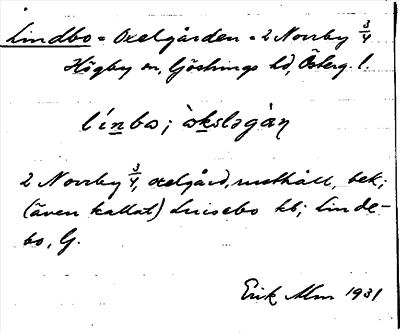 Lindbo = Oxelgården = 2 Norrby 3/4
Högby sn, Göstrings hd, Österg. l.
línbo; òkslogàṇ
2 Norrby 3/4, oxelgård, rusthåll, bek;
(även kallat) Luisebo kb; Linde-
bo, G.
Erik Alm 1931